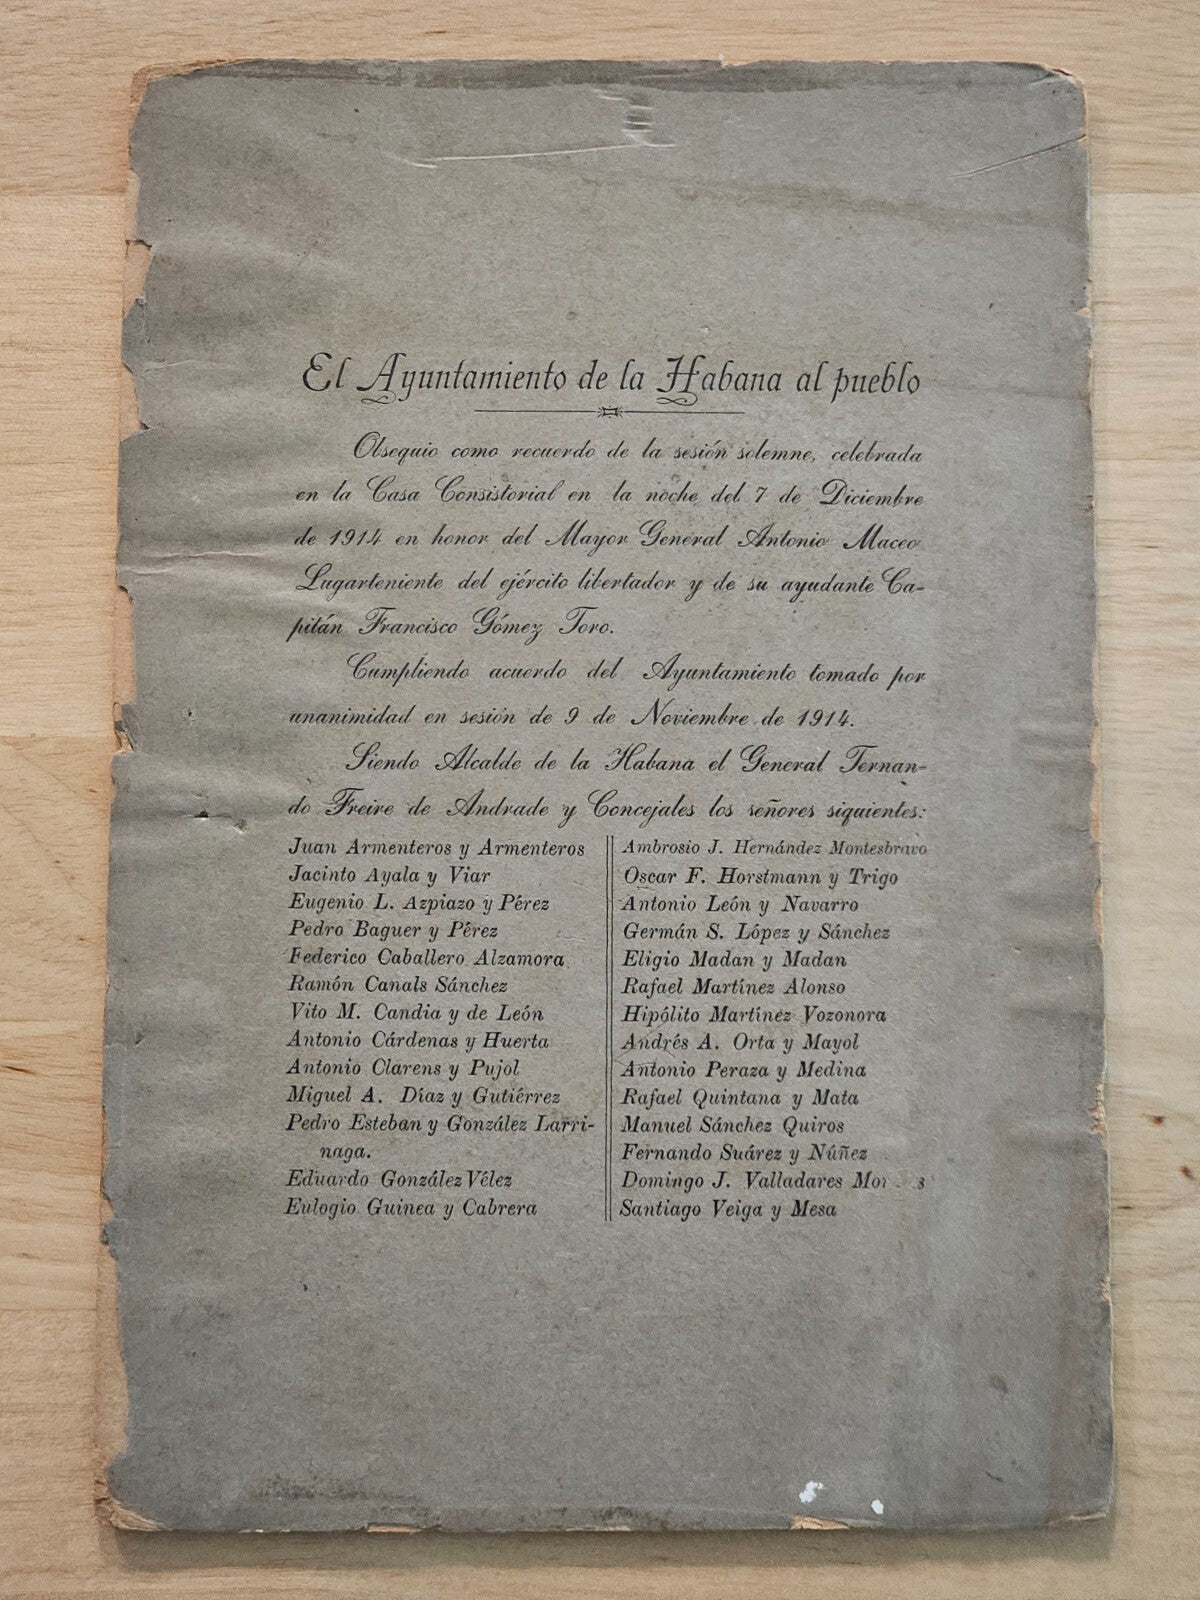 El Ayuntamiento de la Habana al pueblo
Obsequio como recuerdo de la sesión solemne, celebrada
en la Casa Consistorial en la noche del 7 de Diciembre
de 1914 en honor del Mayor General Antonio Maceo
Lugarteniente del ejército libertador y de su ayudante Ca-
pitán Francisco Gómez Toro.
Cumpliendo acuerdo del Ayuntamiento tomado por
unanimidad en sesión de 9 de Noviembre de 1914.
Siendo Alcalde de la Habana el General Fernan-
do Freire de Andrade y Concejales los señores siguientes:
Juan Armenteros y Armenteros
Jacinto Ayala y Viar
Eugenio L. Azpiazo y Pérez
Pedro Baguer y Pérez
Federico Caballero Alzamora
Ramón Canals Sánchez
Vito M. Candia y de León
Antonio Cárdenas y Huerta
Antonio Clarens y Pujol
Miguel A. Díaz y Gutiérrez
Pedro Esteban y González Larri-
naga.
Eduardo González Vélez
Eulogio Guinea y Cabrera
Ambrosio J. Hernández Montesbravo
Oscar F. Horstmann y Trigo
Antonio León y Navarro
Germán S. López y Sánchez
Eligio Madan y Madan
Rafael Martínez Alonso
Hipólito Martínez Vozonora
Andrés A. Orta y Mayol
Antonio Peraza y Medina
Rafael Quintana y Mata
Manuel Sánchez Quiros
Fernando Suárez y Núñez
Domingo J. Valladares
Santiago Veiga y Mesa